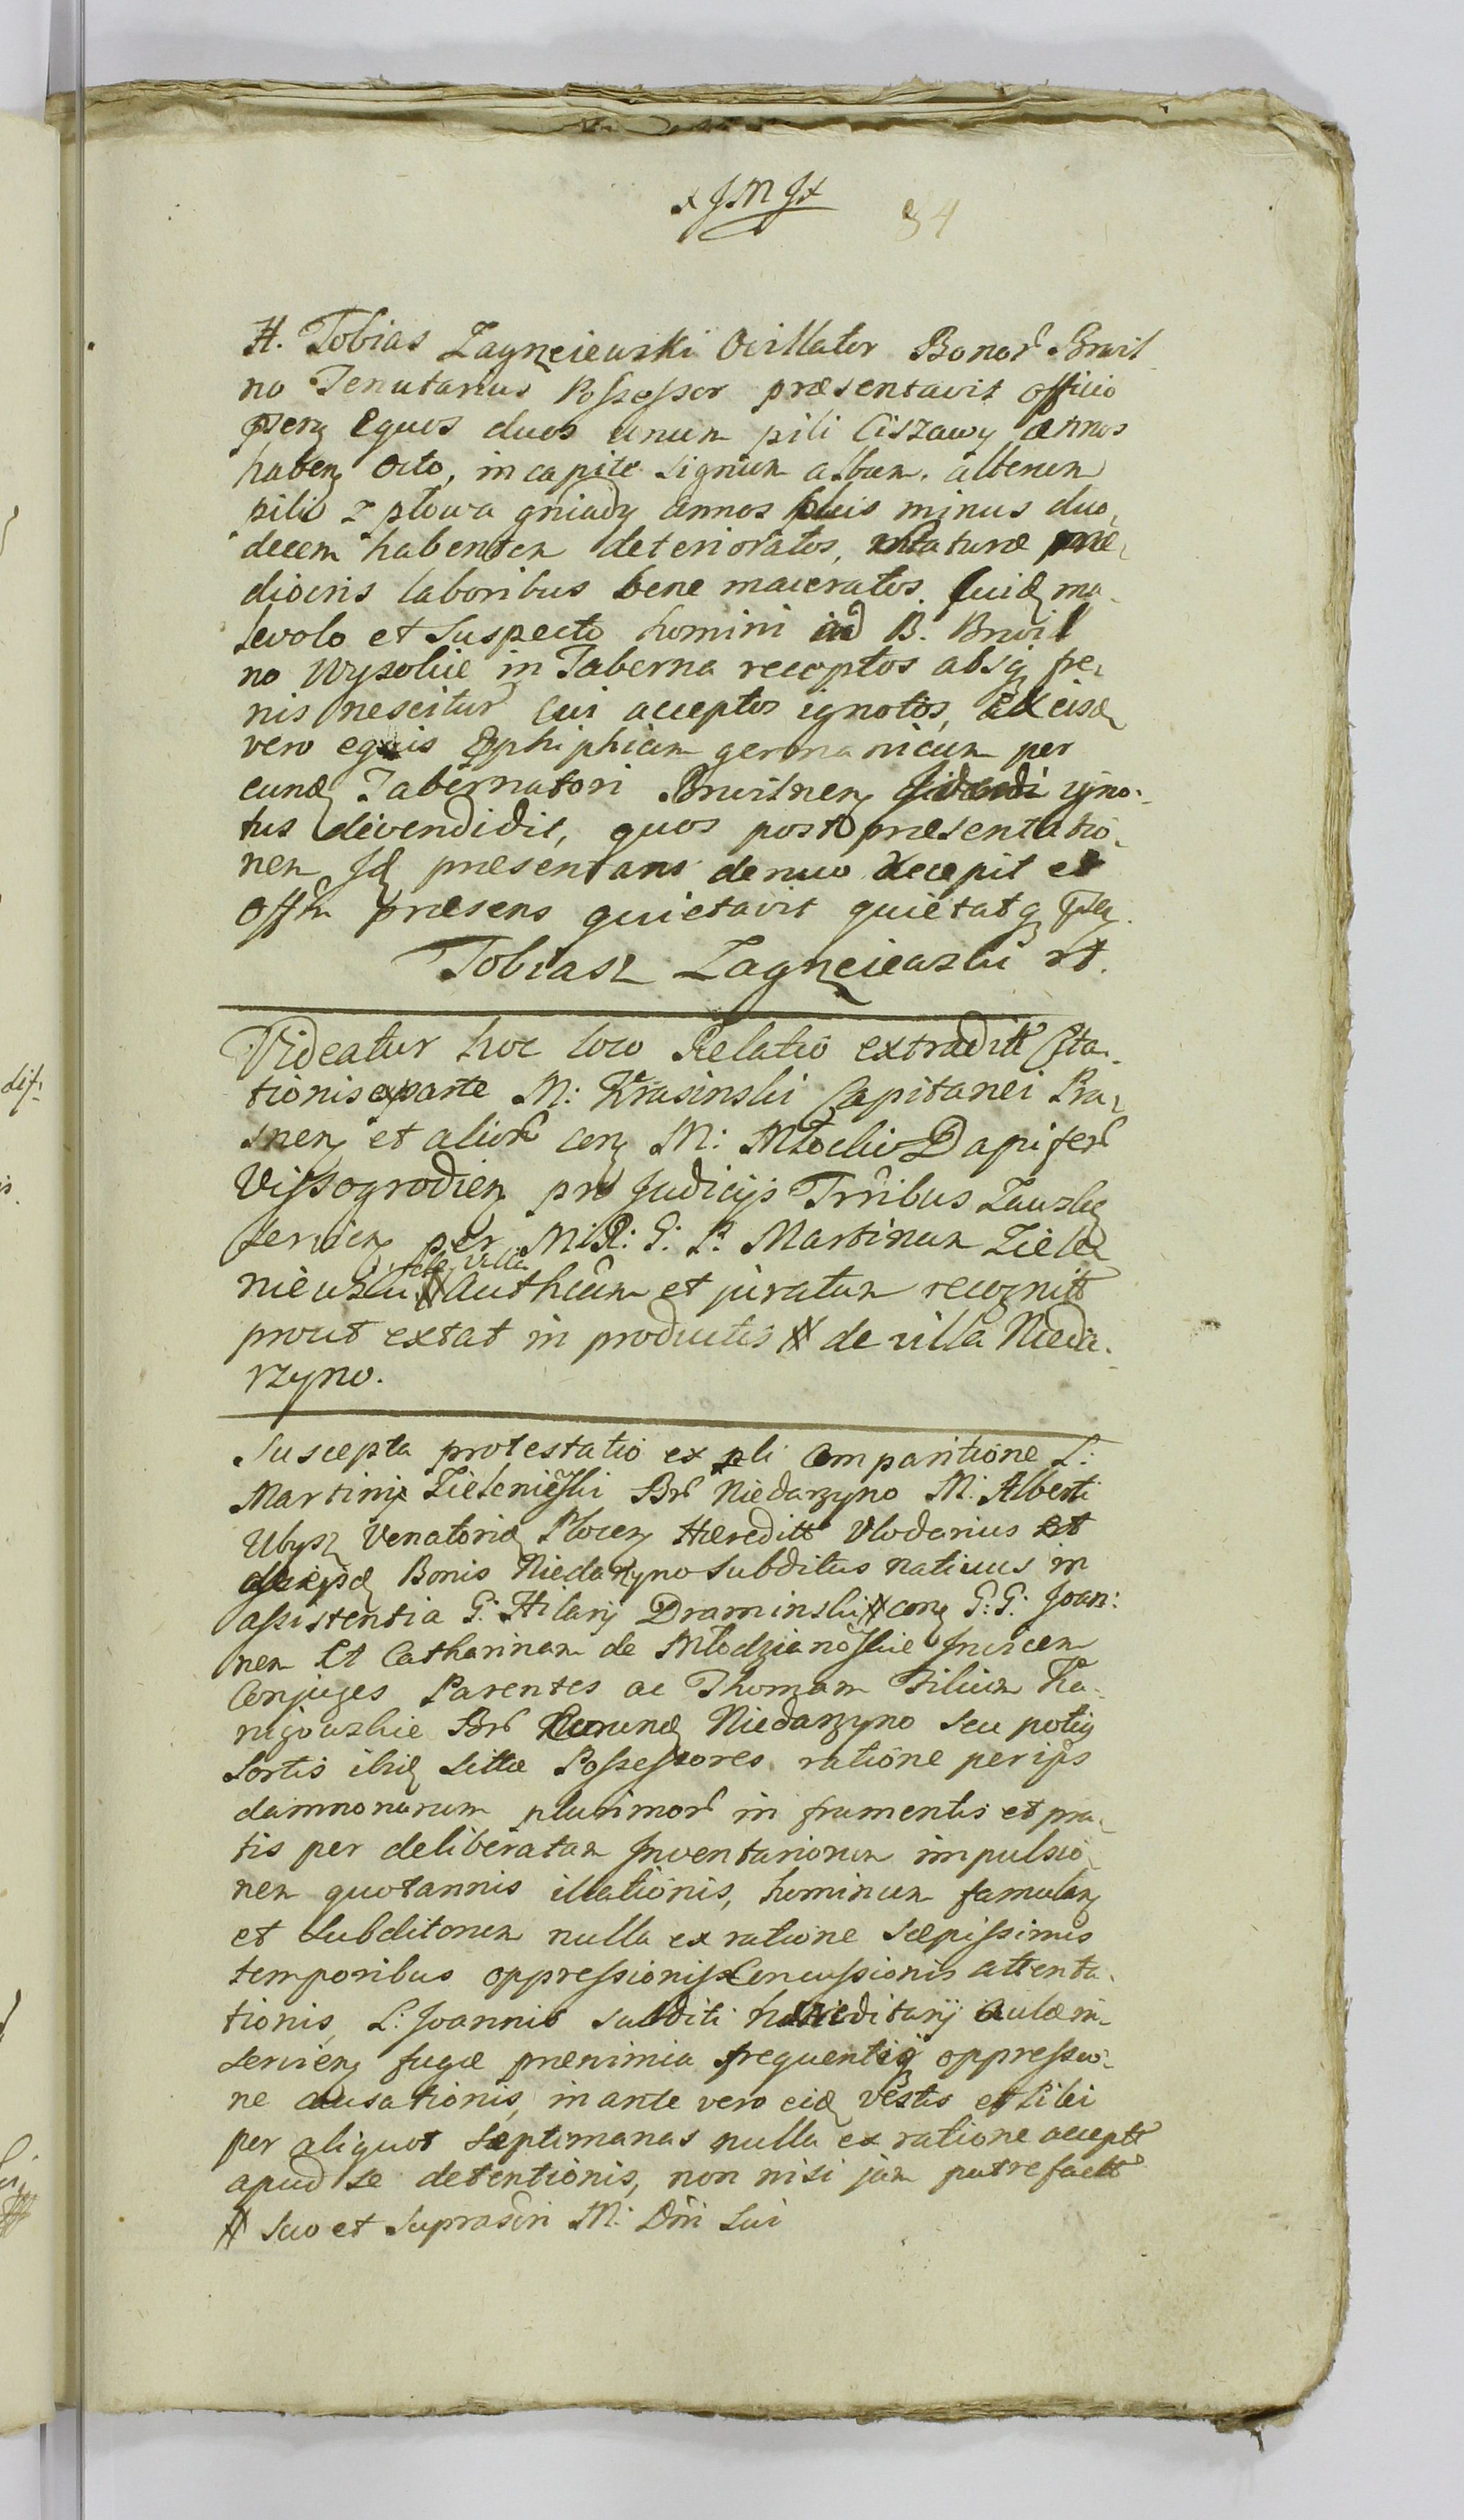 x JMJ x
34
H. Tobias Zagrzeiewski Ovillator Bonor Brwil
no Tenutarius Possessor præsentavit officio
pserz Equos duos unum pili Ciszawy annos
habenz octo, in capite signum album, alterum
pilis z płowa gniady annos plus minus duo,
decem habentem deterioratos, staturæ me,
diocris laboribus bene maceratos. cuidz ma,
levolo et suspecto homini in B. Brwil
no Wysokie in Taberna receptos absqz fre,
nis nescitur cui acceptos ignotos, ex eisdz
vero equis Ephiphium germanicum per
eundz Tabernatori Brwilnenz igno,
tus devendidit, quos post præsentatio,
nem Idz præsentans denuo recepit et
Offm præsens quietavit quietatqz psz.
Tobiasz Zagrzeiewski rt.
Videatur hoc loco Relatio extradittæ Cita,
tionis ex parte M: Krasinski Capitanei Pra,
snenz et alior conz M: Młocki Dapifer
Vissogrodienz pro Judicijs Trribus Zawskz
servienz per MR: G: P. Martinum Ziele
niewski # authcum et juratum recognitt
prout extat in productis # de villa Nieda,
rzyno.
Suscepta protestatio ex pli Comparitione L:
Martini Zieleniewski Br Niedarzyno M. Alberti
Ubysz Venatoridz Plocenz Hæreditt Vlodarius et
Bonis Niedarzyno subditus nativus in
assistentia G: Hilarij Draminski # conz G: G: Joan:
nem Et Catharinam de Młodzianowskie Invicem
Conjuges Parentes ac Thomam Filium Ka,
nigowskie Br Eorundz Niedarzyno seu potiq
sortis ibidz sittæ Possessores ratione per ips
damnonarum plurimor in frumentis et pra,
tis per deliberatam Inventariorum impulsio,
nem quotannis illationis, hominum famulanz
et subditorum nulla ex ratione sæpissimis
temporibus oppressionis Concussionis attenta,
tionis, L: Joannis subditi hæreditarij aulæ in,
servienz fugæ prænimia frequentiq oppressio,
ne causationis, in ante vero eidz vestis et Pilei
per aliquot septimanas nulla ex ratione accept
apud se detentionis, non nisi jam putrefactt
# suo et supradiri M: Dni sui